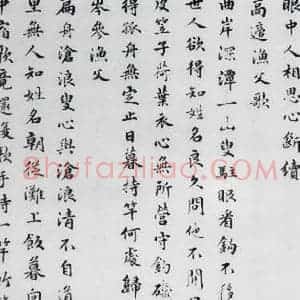 眼中人相思心斷續
高適漁父歌
曲岸深潭一山叟駐眼看鈎不移
世人欲得知姓名良久問他不開
皮笠子荷葉衣心無所營守釣磯
得孤舟無定止日暮持竿何處歸
岑參漁父
扁舟滄浪叟心與滄浪清不自道
里無人知姓名朝從灘上飯暮向
中宿歌竟還復歌手持一竿竹
Shufaziliao.com